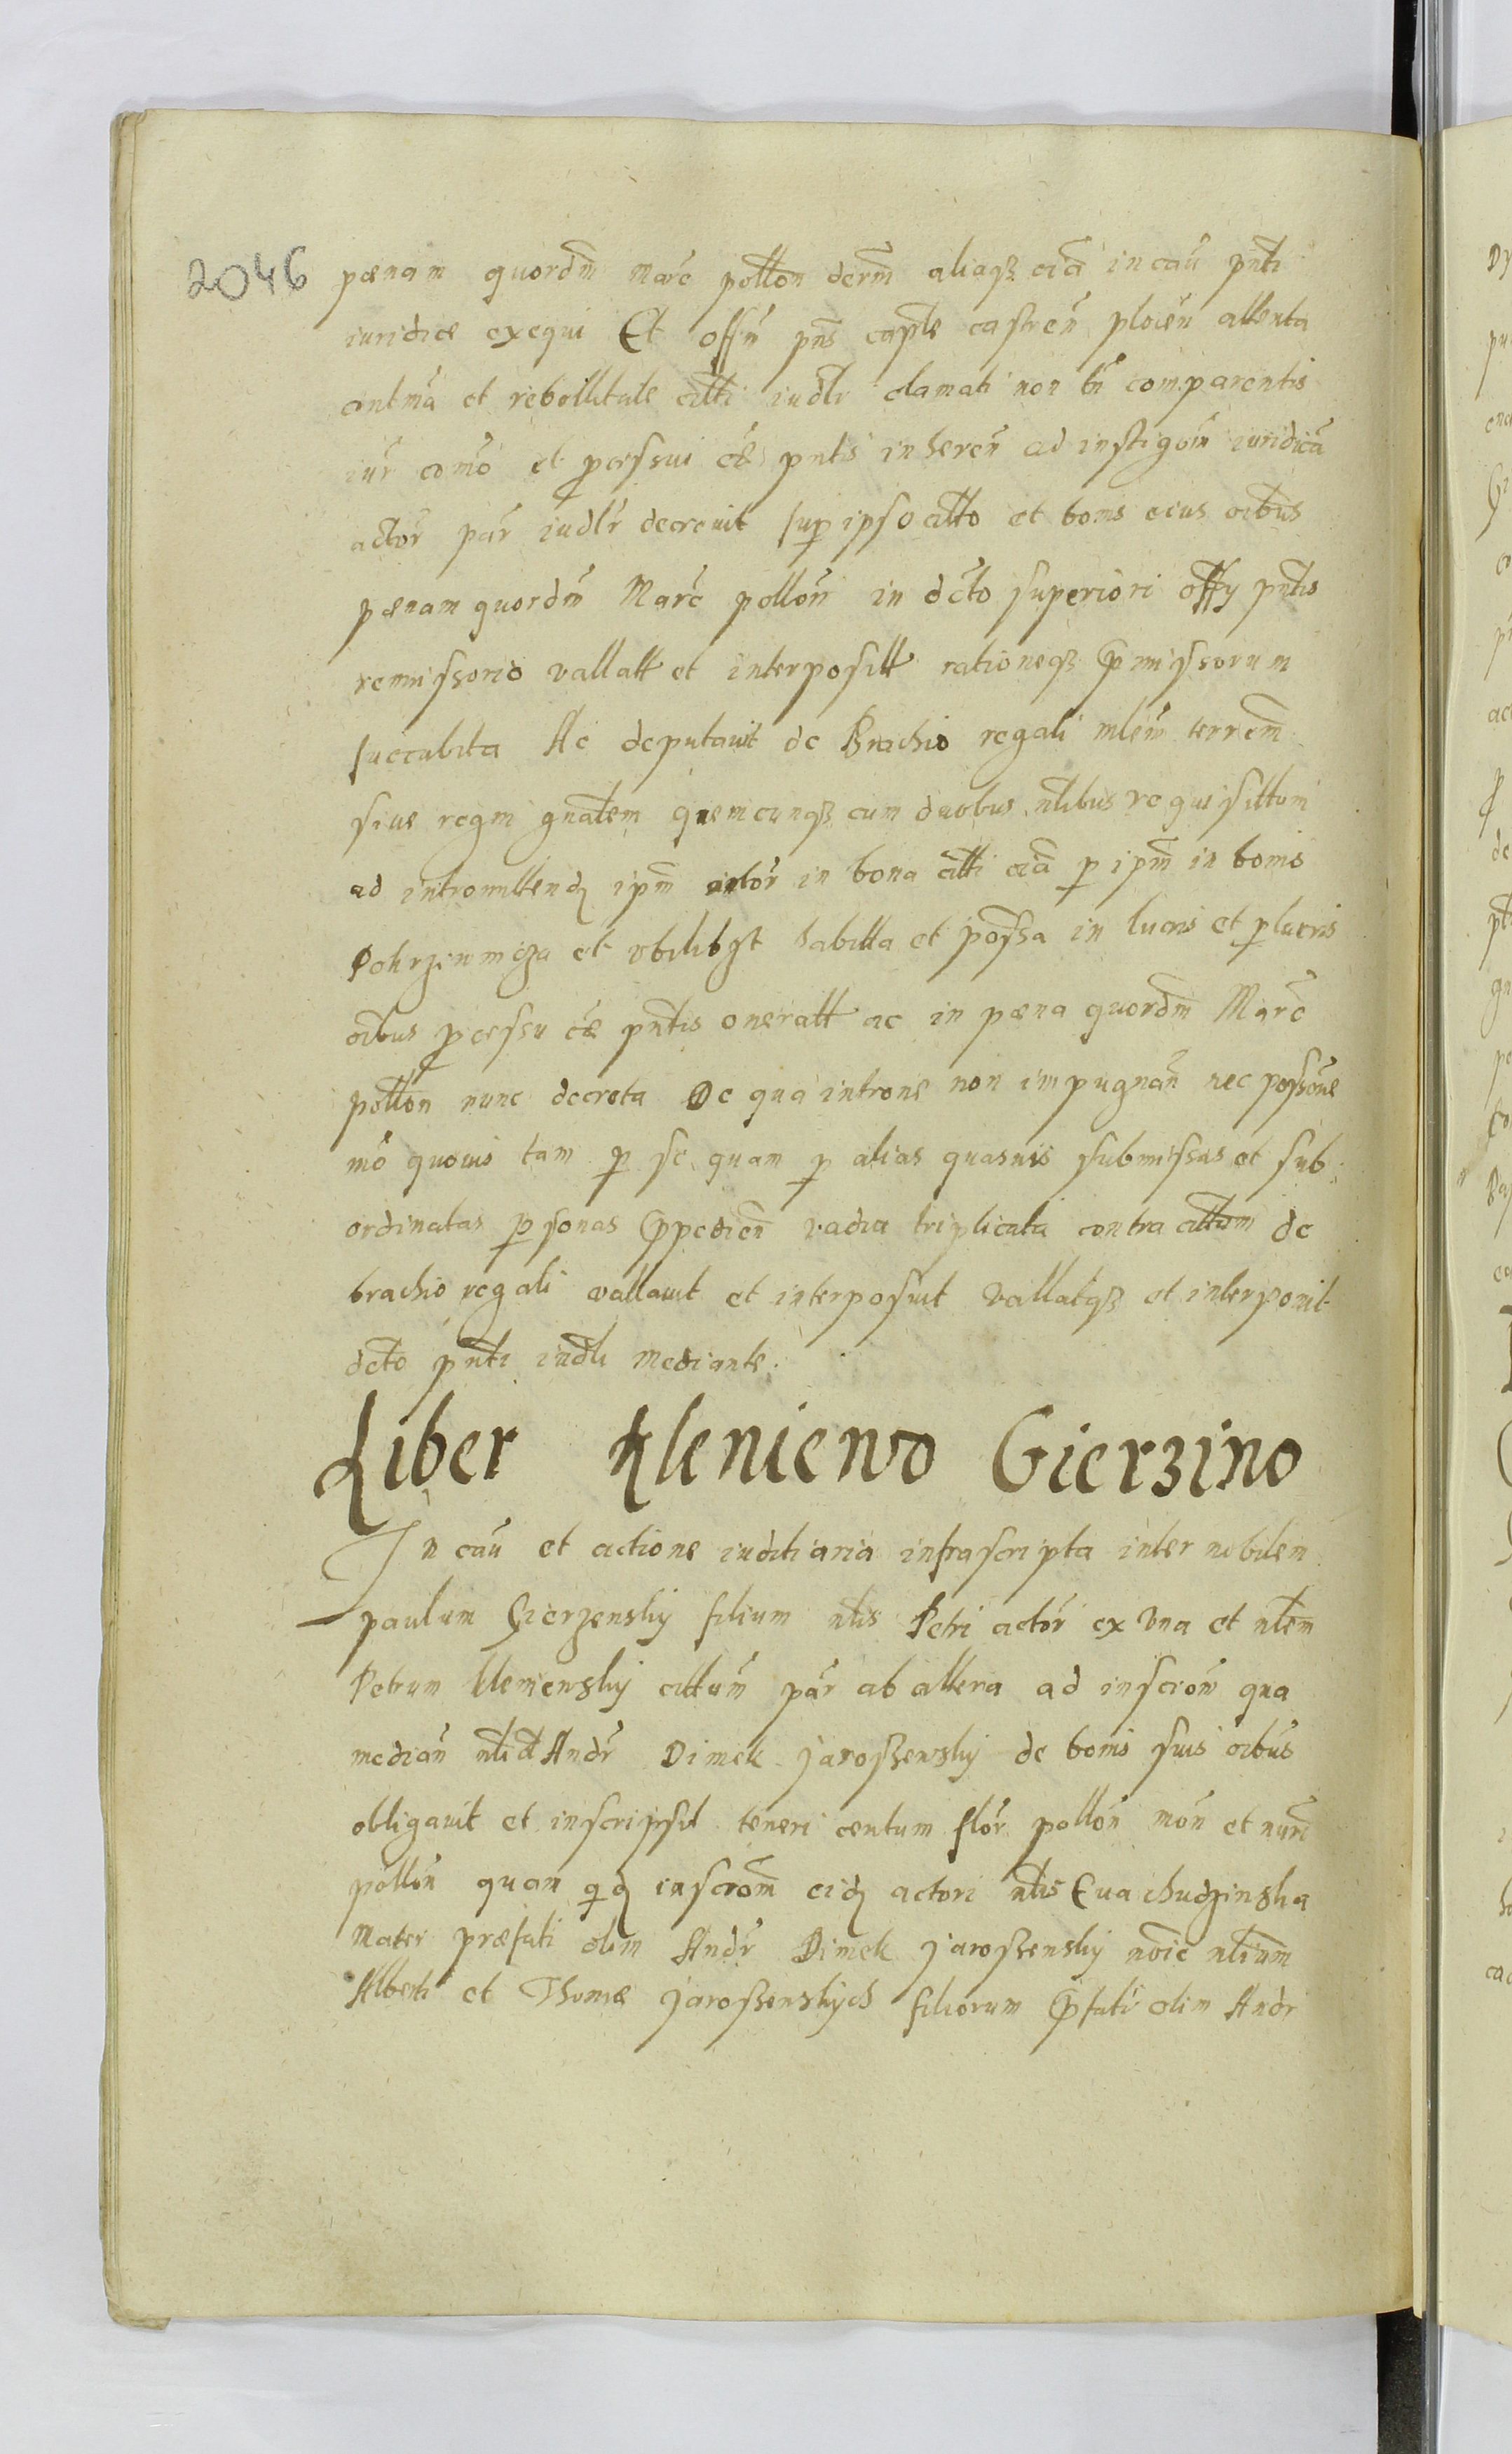 2046
pœnam quordm̃ marc̃ pollon̄ decrm̃ aliaqȝ oĩa in caũ pñti
iuridice exequi Et offm̃ pñs capt̃le castreñ ploceñ attenta
contmã et rebellitate citti iudlr clamati non tñ comparentis
iur̃ como et processui cæ pñtis inhereñ ad instigoñ iuridicã
actor̃ par̃ iudlr̃ decrevit sup ipso citto et bonis eius oibus
pœnam quordm̃ Marc̃ pollon̄ in dc̃to superiori offy pñtis
remissorio vallatt et interpositt rationeqȝ p̃missorum
succubita Ac deputavit de Brachio regali mlem terrem̃
sive regni gnal̃em quemcunqȝ cum duobus nlibus requisittum
ad intromittendꝫ ipm̃ actor̃ in bona citti oĩa p ipm̃ in bonis
et ubilibȝt habitta et possa in lucris et perlucris
oibus processu cæ pñtis oneratt ac in pœna quordm̃ Marc̃
pollon̄ nunc decreta De qua introne non impugnañ nec possone
mo quovis tam p se quam p alias quasvis submissas et sub
ordinatas personas p̃pedieñ vadia triplicata contra cittum de
brachio regali vallavit et interposuit vallatqȝ et interponit
dcto pñti iudli mediante.
Liber Kleniewo Gierzino
In caũ et actione iuditiaria infrascripta inter nobilem
paulum Gierzenskij filium nlis Petri actor̃ ex Una et nlem̃
Petrum klemewskij cittum̃ par̃ ab altera ad inscroñ qua
mediañ Andr̃ Dimek Jaroszewskij de bonis suis oibus
obligavit et inscripsit teneri centum flor̃ pollon̄ moñ et nuri
pollon̄ quam qdꝫ inscrom̃ eidꝫ actori nlis Eva chudzinska
Mater præfati olim Andr̃ Dimek Jaroszenskij noĩe nlium̃
Alberti et Thomæ Jaroszenskych filiorum p̃fati olim Andr̃